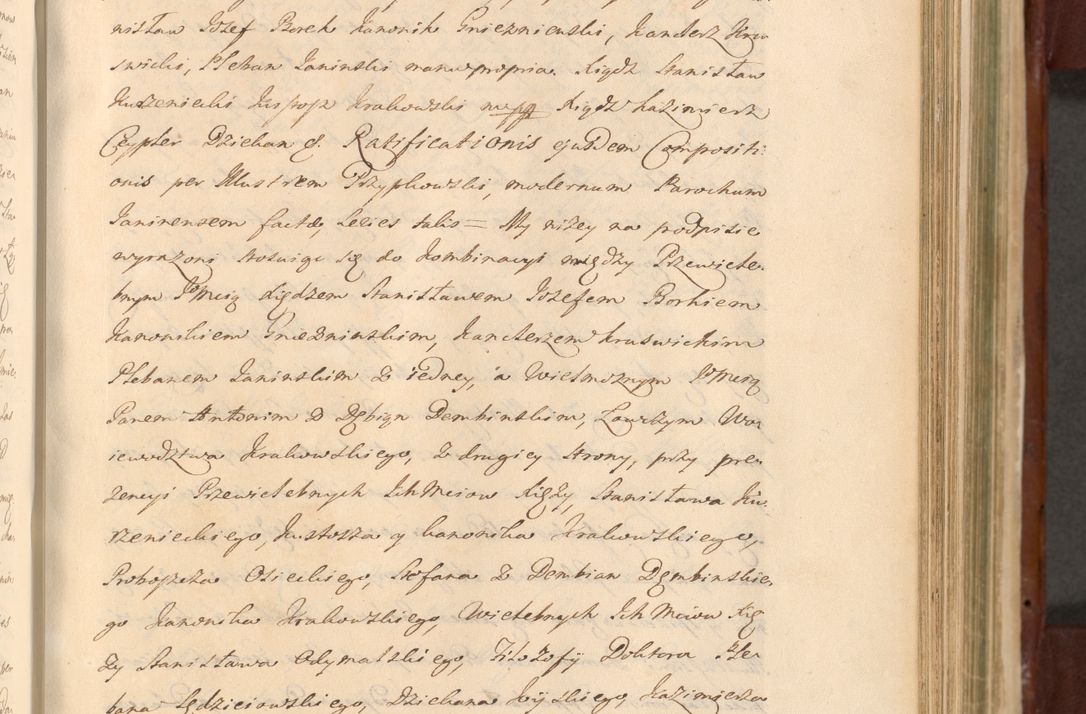 nisław Jozef Borek Kanonik Gnieznienski, Kanclerz Kru
swicki, Pleban Janinski manu propria. Xiądz Stanisław
Kurzeniecki Kustosz Krakowski mpp Xiądz Kazimierz
Czypser Dziekan &. Ratificationis ejusdem Compositi-
onis per Illustrem Przypkowski, modernum Parochum
Janinensem factæ, Series talis = My niżey na podpisie
wyrażoni stosuiąc się do Kombinacyi między Przewiele-
bnym JPmcią Xiędzem Stanisławem Jozefem Borkiem
Kanonikiem Gnieznienskim, Kanclerzem Kruswickim
Plebanem Janinskim z iedney, a Wielmożnym JPmcią
Panem Antonim z Dębian Dembinskim, Łowczym Wo-
iewodztwa Krakowskiego, z drugiey strony, przy pre-
zencyi Przewielebnych Ich Mciow Xięży, Stanisława Ku-
rzenieckiego, Kustosza y kanonika Krakowskiego,
Proboszcza Osieckiego, Stefana z Dembian Dembinskie-
go Kanonika Krakowskiego, Wielebnych Ich Mciow Xię
ży Stanisława Odymalskiego, Filozofij Doktora Ple-
bana Sędziejowskiego, Dziekana Kijskiego, Kazimierza